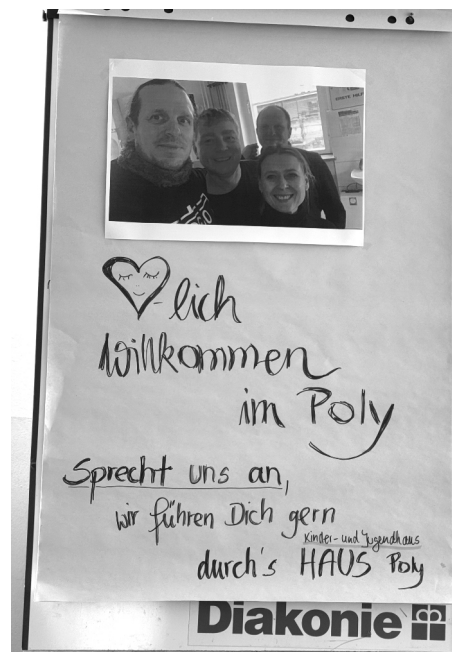 -lich
Willkommen
im Poly
Sprecht uns an,
wir führen Dich gern
Kinder- und Jugendhaus
durch's HAUS Poly
Diakonie